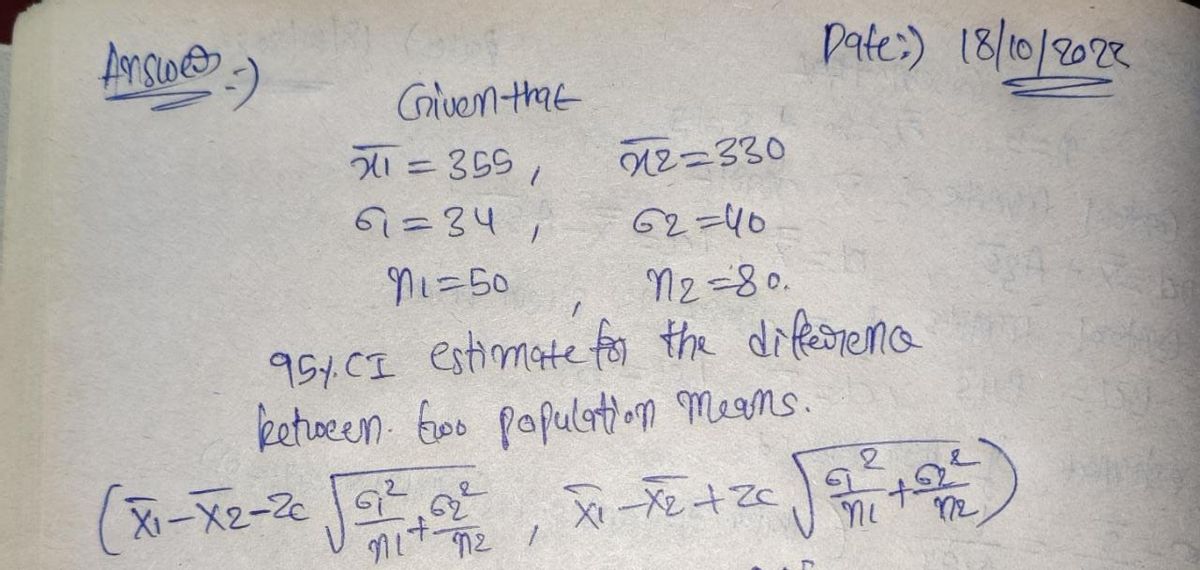 Answer :-)
Date:) 18/10/2022
Given that
x̄1 = 355, x̄2 = 330
σ1 = 34, σ2 = 40
n1 = 50, n2 = 80.
95% CI estimate for the difference
between two population means.
(x̄1 - x̄2 - Zc √(σ1²/n1 + σ2²/n2), x̄1 - x̄2 + Zc √(σ1²/n1 + σ2²/n2))